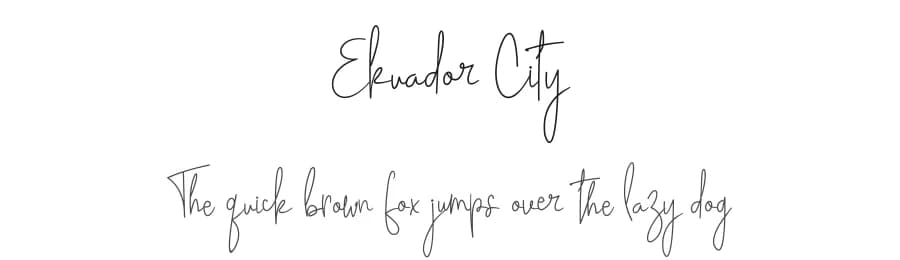 Ekuador City
The quick brown fox jumps over the lazy dog